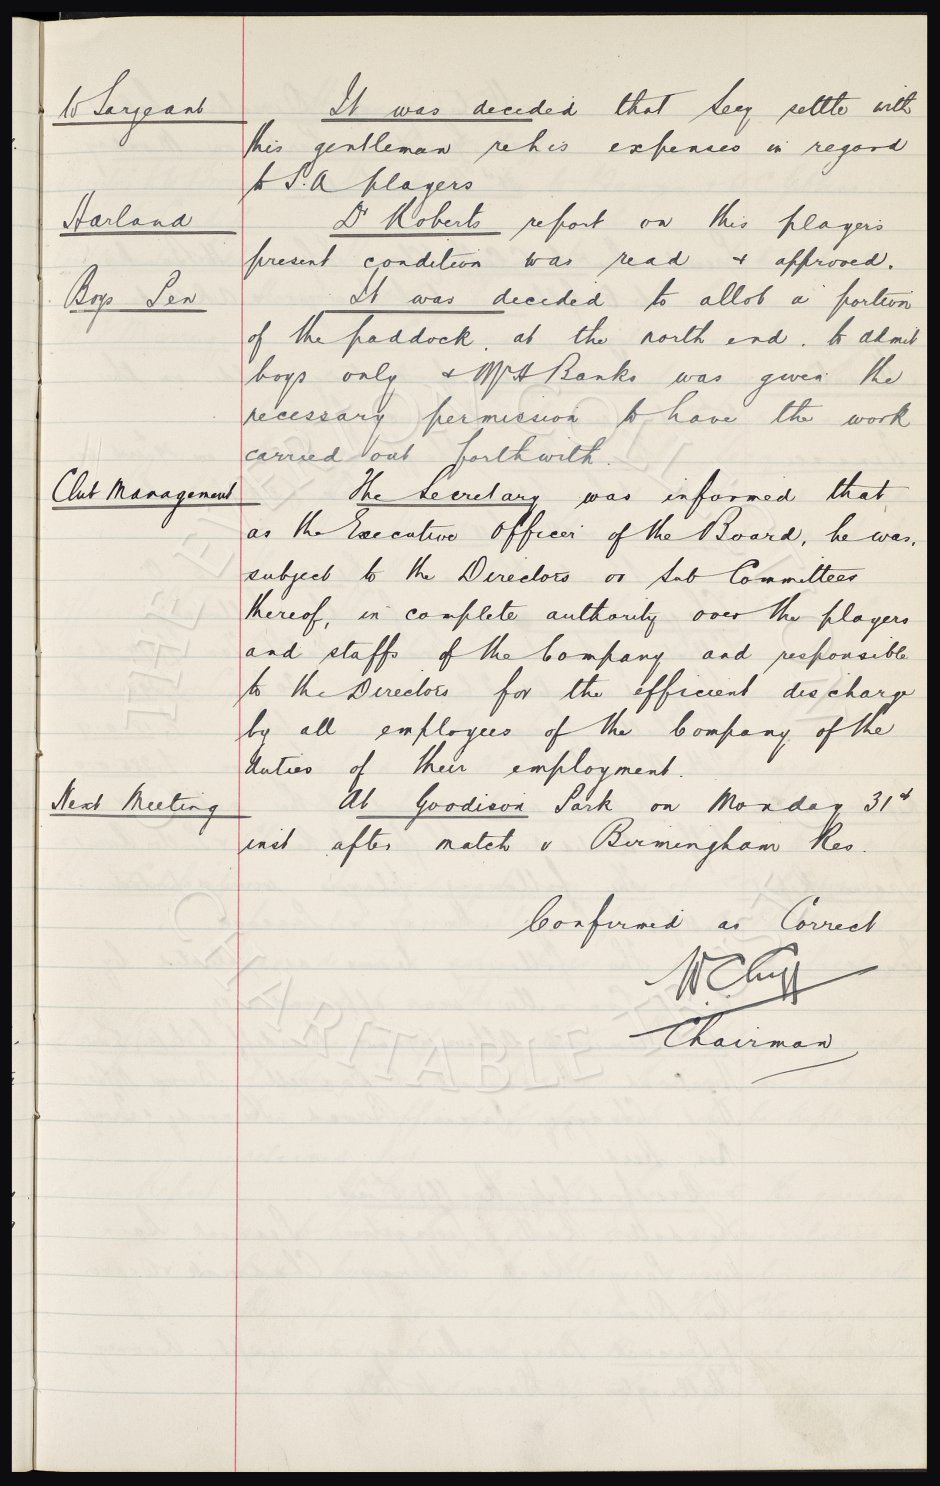 W Sargeant It was decided that Secy settle with
this gentleman re his expenses in regard
to S.A players
Harland Dr Roberts report on this players
present condition was read & approved.
Boys Pen It was decided to allot a portion
of the paddock, at the north end, to admit
boys only & Mr H Banks was given the
necessary permission to have the work
carried out forthwith.
Club Management The Secretary was informed that,
as the Executive Officer of the Board, he was,
subject to the Directors or Sub Committees
thereof, in complete authority over the players
and staffs of the Company and responsible
to the Directors for the efficient discharge
by all employees of the Company of the
duties of their employment.
Next Meeting At Goodison Park on Monday 31st
inst after match v Birmingham Res.
Confirmed as Correct
W.C. Cuff
Chairman
THE EVERTON COLLECTION
CHARITABLE TRUST